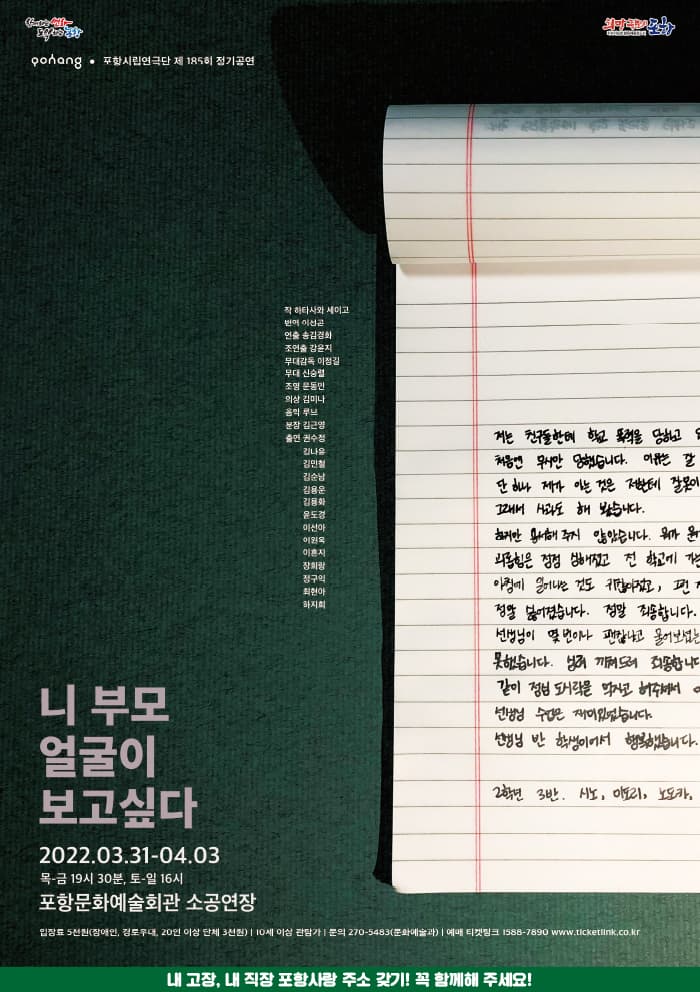 pohang • 포항시립연극단 제 185회 정기공연
작 하타사와 세이고
번역 이성곤
연출 송김경화
조연출 강윤지
무대감독 이정길
무대 신승렬
조명 문동민
의상 김미나
음악 루브
분장 김근영
출연 권수정
김나유
김민철
김순남
김용운
김용화
윤도경
이선아
이원욱
이혼지
장희랑
정구익
최현아
하지희
저는 친구들한테 학교 폭력을 당하고
처음엔 무시만 당했습니다. 이유는 잘
단 하나 제가 아는 것은 저한테 잘못이
그래서 사과도 해 봤습니다.
하지만 용서해 주지 않았습니다. 뭐가
괴롭힘은 점점 심해졌고 전 학교에 가는
아침에 일어나는 것도 귀찮아졌고,
정말 싫어졌습니다. 정말 죄송합니다.
선생님이 몇 번이나 괜찮냐고 물어보셨는
못했습니다. 심려 끼쳐드려 죄송합니다
같이 점심 도시락을 먹자고 해주셔서
선생님 수업은 재미있었습니다.
선생님 반 학생이어서 행복했습니다.
2학년 3반. 시노, 미도리, 노도카,
니 부모
얼굴이
보고싶다
2022.03.31-04.03
목-금 19시 30분, 토-일 16시
포항문화예술회관 소공연장
입장료 5천원(장애인, 경로우대, 20인 이상 단체 3천원) | 10세 이상 관람가 | 문의 270-5483(문화예술과) | 예매 티켓링크 1588-7890 www.ticketlink.co.kr
내 고장, 내 직장 포항사랑 주소 갖기! 꼭 함께해 주세요!